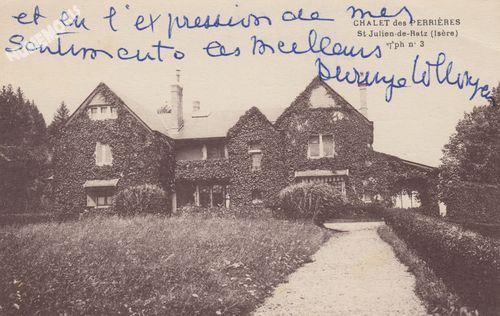 et en l'expression de mes
sentiments les meilleurs
CHALET des PERRIÈRES
St Julien-de-Ratz (Isère)
Tph n° 3